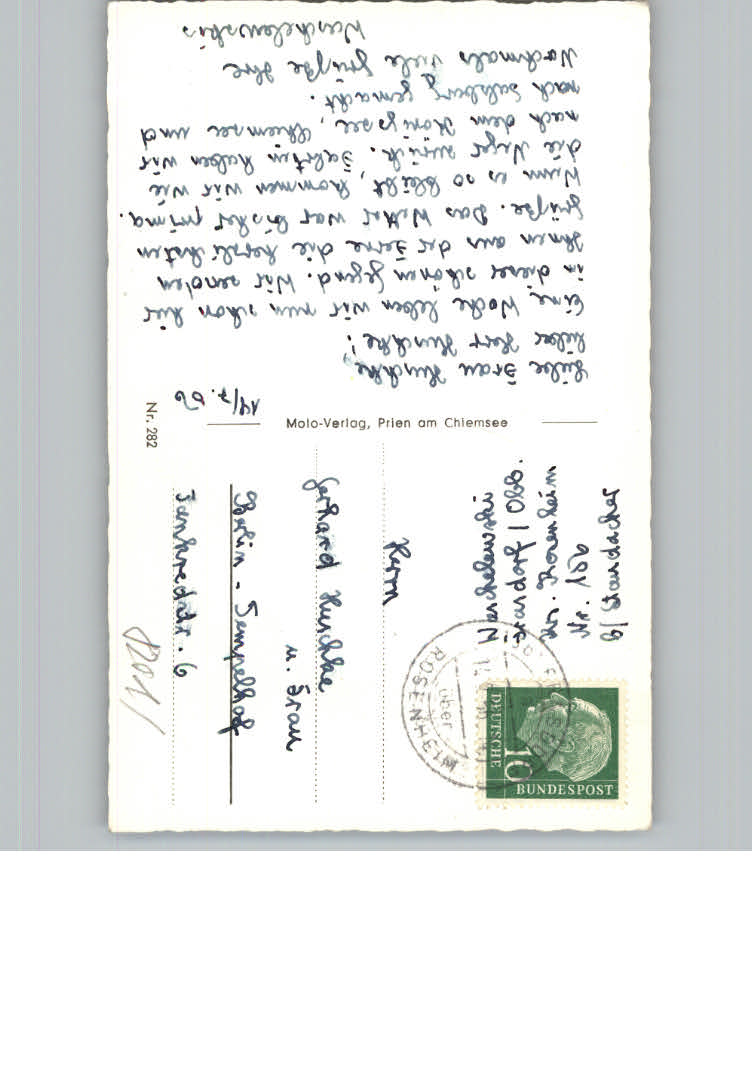 Liebe Frau Huschke,
lieber Herr Huschke!
Eine Woche leben wir nun schon hier
in dieser schönen Gegend. Wir senden
Ihnen aus der Ferne die herzlichsten
Grüße. Das Wetter war bisher prima.
Wenn es so bleibt, kommen wir wie
die Neger zurück. Fahrten haben wir
nach dem Königsee, Chiemsee und
nach Salzburg gemacht.
Nochmals viele Grüße Ihre
Waschelewskis
14/7. 56
Molo-Verlag, Prien am Chiemsee
Nr. 282
Waschelewski
Frasdorf / Obb.
Kr. Rosenheim
Nr. 189
b/ Staudacher
Herrn
Gerhard Huschke
u. Frau
Berlin - Tempelhof
Tankredstr. 6
über
ROSENHEIM
DEUTSCHE
10
BUNDESPOST